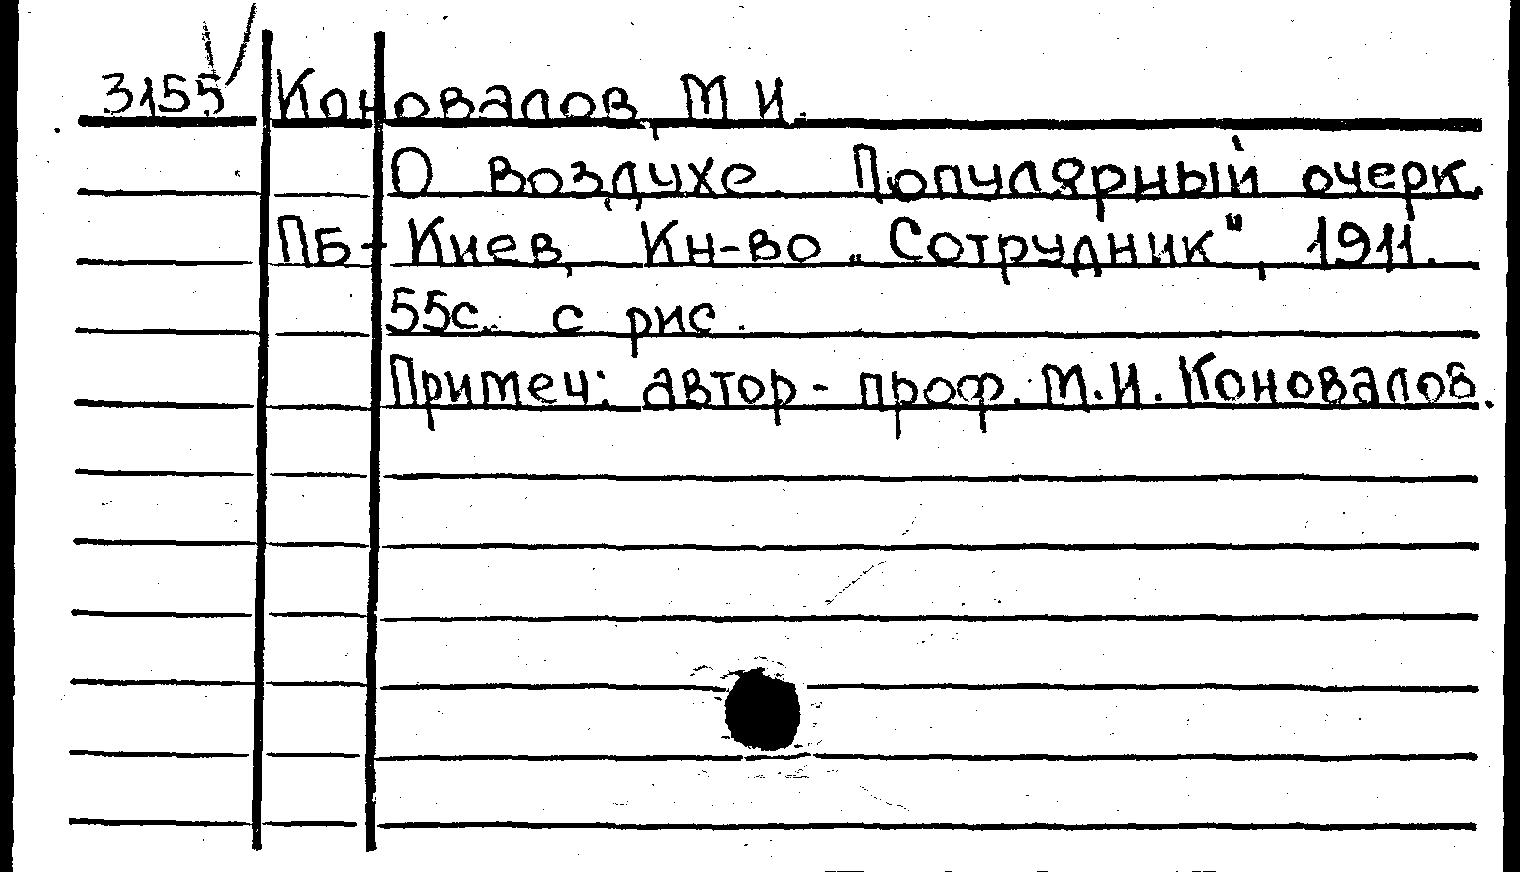 3155 Коновалов, М И.
О воздухе. Популярный очерк.
ПБ- Киев, Кн-во „Сотрудник", 1911.
55с. с рис.
Примеч: автор - проф. М.И. Коновалов.